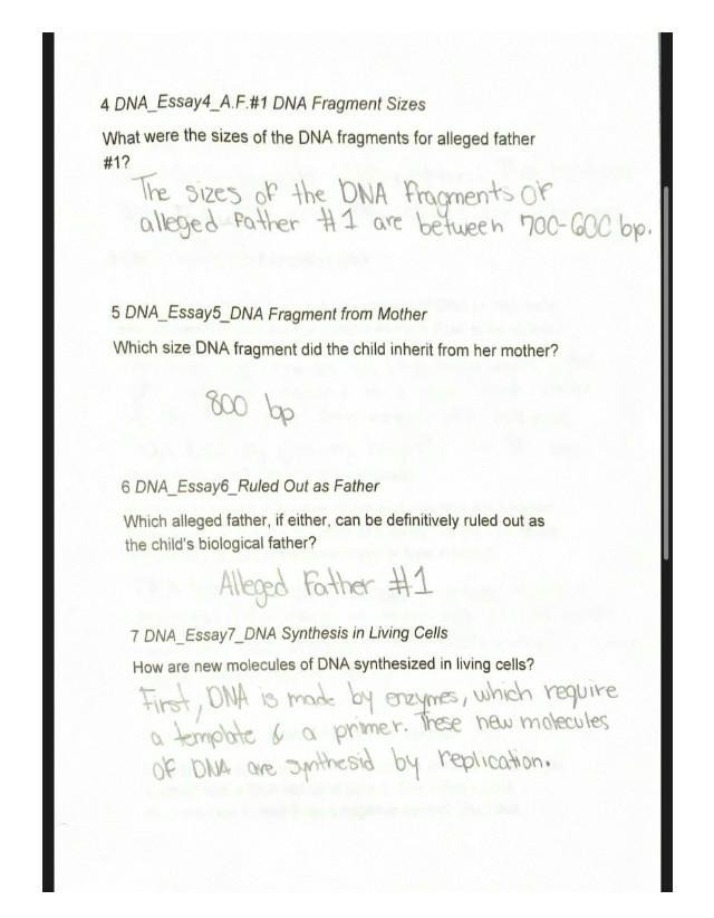 4 DNA_Essay4_A.F.#1 DNA Fragment Sizes
What were the sizes of the DNA fragments for alleged father
#1?
The sizes of the DNA fragments of
alleged father #1 are between 700-600 bp.
5 DNA_Essay5_DNA Fragment from Mother
Which size DNA fragment did the child inherit from her mother?
800 bp
6 DNA_Essay6_Ruled Out as Father
Which alleged father, if either, can be definitively ruled out as
the child's biological father?
Alleged Father #1
7 DNA_Essay7_DNA Synthesis in Living Cells
How are new molecules of DNA synthesized in living cells?
First, DNA is made by enzymes, which require
a template & a primer. These new molecules
of DNA are synthesid by replication.